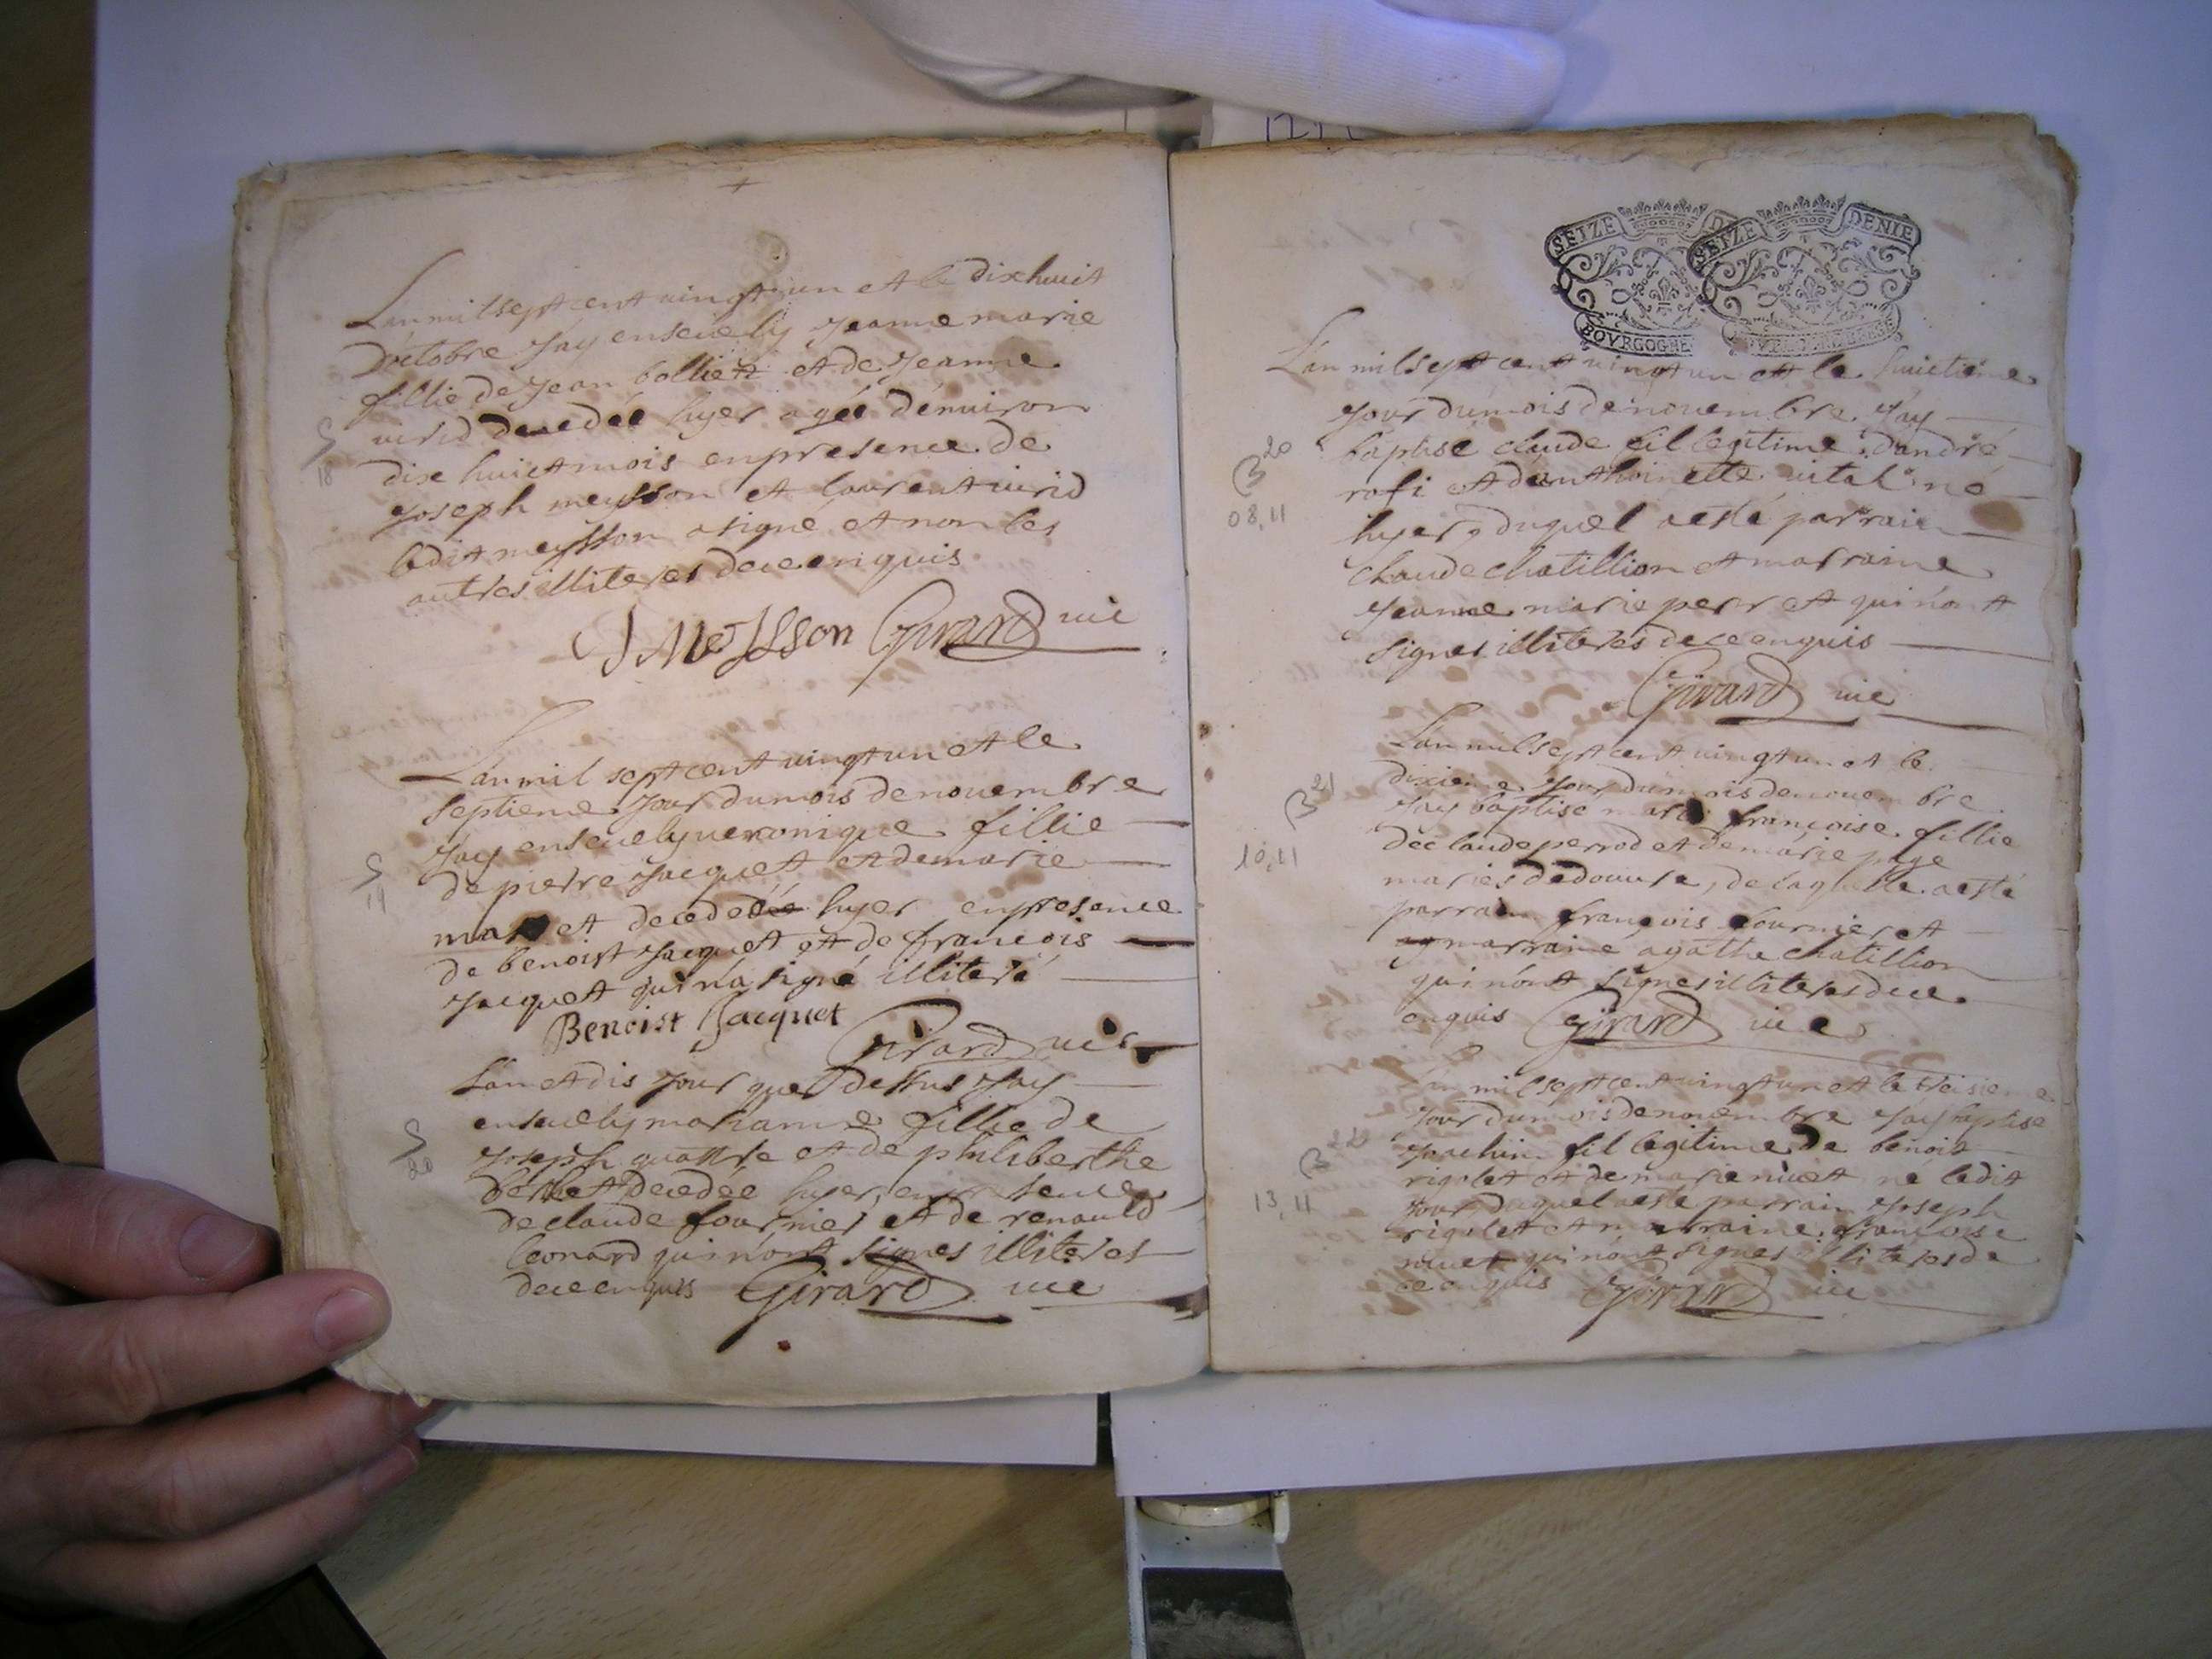 L'an mil sept cent vingt un et le dixhuit
d'octobre j'ay ensevely jeanne marie
fillie de jean bolliet et de jeanne
virid decedée hyer agée d'environ
dixe huict mois en presence de
joseph meysson et laurent virid
ledit meysson a signé et non les
autres illiteres de ce enquis
J Meysson Girard vic
S
18
L'an mil sept cent vingt un et le
septieme jour du mois de novembre
j'ay ensevely veronique fillie
de pierre jacquet et de marie
et decedeé hyer en presence
de benoist jacquet et de francois
jacquet qui n'a signé illiteré
Benoist Jacquet
Girard vic
S
19
L'an et dis jour que dessus j'ay
ensevely marianne fillie de
joseph quattre et de philiberthe
decedée hyer, en presence
de claude fournier et de renauld
leonard qui n'ont signes illiteres
de ce enquis Girard vic
S
20
SEIZE DE
SEIZE DENIE
BOVRGOGNE
L'an mil sept cent vingt un et le huictieme
jour du mois de novembre j'ay
baptisé claude fil legitime d'andré
rofi et d'anthoinette vital né
hyer, duquel a esté parrain
claude chatillion et marraine
jeanne marie perret qui n'ont
signes illiteres de ce enquis
Girard vic
B 20
08,11
L'an mil sept cent vingt un et le
dixieme jour du mois de novembre
j'ay baptisé marie françoise fillie
de claude perrod et de marie page
maries de, de laquelle a esté
parrain françois fournier et
marraine agathe chatillion
qui n'ont signes illiteres de ce
enquis Girard vic
B 21
10,11
L'an mil sept cent vingt un et le treisieme
jour du mois de novembre j'ay baptisé
joachim fil legitime de benoit
rigolet et de marie nivet né ledit
jour duquel a esté parrain joseph
rigolet et marraine françoise
nivet qui n'ont signes illiteres de
ce enquis Girard vic
B 22
13,11